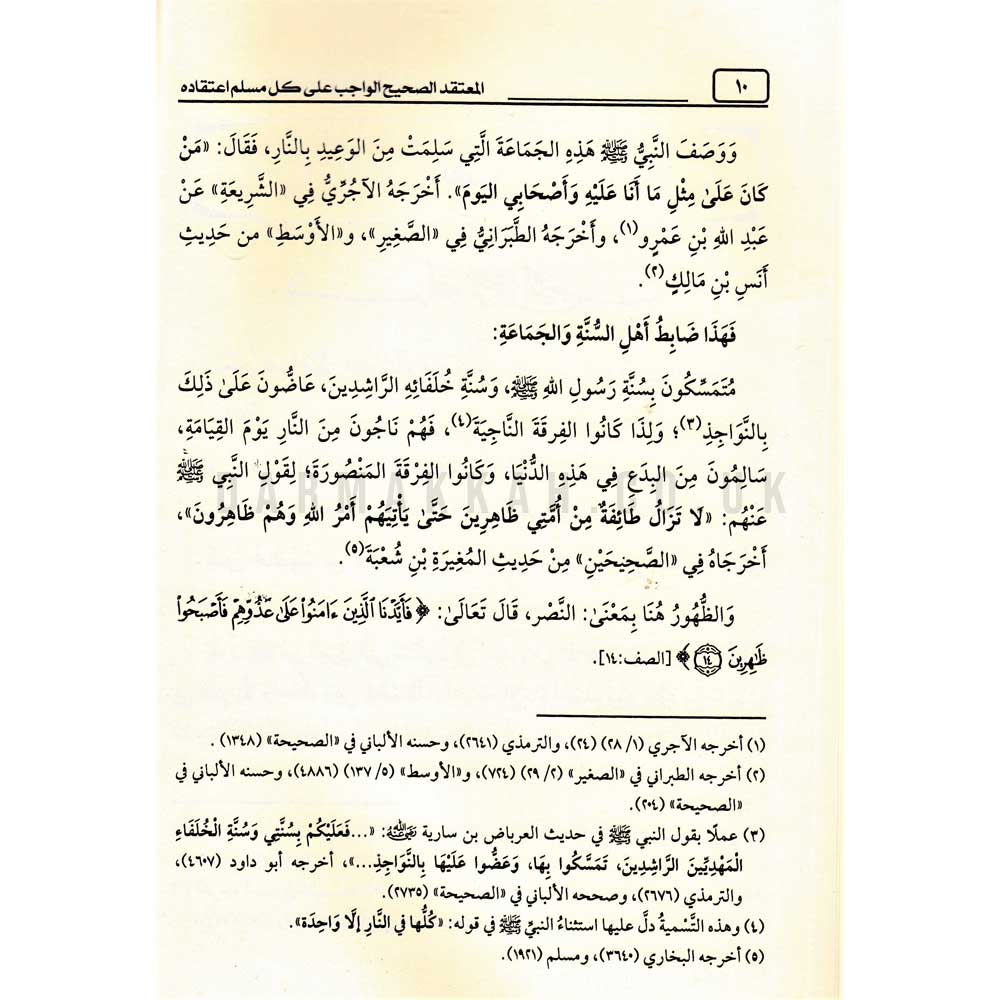 ١٠
المعتقد الصحيح الواجب على كل مسلم اعتقاده
وَوَصَفَ النَّبِيُّ ﷺ هَذِهِ الجَمَاعَةَ الَّتِي سَلِمَتْ مِنَ الوَعِيدِ بِالنَّارِ، فَقَالَ: «مَنْ
كَانَ عَلَىٰ مِثْلِ مَا أَنَا عَلَيْهِ وَأَصْحَابِي اليَومَ». أَخْرَجَهُ الآجُرِّيُّ فِي «الشَّرِيعَةِ» عَنْ
عَبْدِ اللهِ بْنِ عَمْرٍو(١)، وأَخْرَجَهُ الطَّبَرَانِيُّ فِي «الصَّغِيرِ»، و«الأَوْسَطِ» من حَدِيثِ
أَنَسِ بْنِ مَالِكٍ(٢).
فَهَذَا ضَابِطُ أَهْلِ السُّنَّةِ وَالجَمَاعَةِ:
مُتَمَسِّكُونَ بِسُنَّةِ رَسُولِ اللهِ ﷺ، وَسُنَّةِ خُلَفَائِهِ الرَّاشِدِينَ، عَاضُّونَ عَلَىٰ ذَلِكَ
بِالنَّوَاجِذِ(٣)؛ وَلِذَا كَانُوا الفِرقَةَ النَّاجِيَةَ(٤)، فَهُمْ نَاجُونَ مِنَ النَّارِ يَوْمَ القِيَامَةِ،
سَالِمُونَ مِنَ البِدَعِ فِي هَذِهِ الدُّنْيَا، وَكَانُوا الفِرْقَةَ المَنْصُورَةَ؛ لِقَوْلِ النَّبِي ﷺ
عَنْهُم: «لَا تَزَالُ طَائِفَةٌ مِنْ أُمَّتِي ظَاهِرِينَ حَتَّىٰ يَأْتِيَهُمْ أَمْرُ اللهِ وَهُمْ ظَاهِرُونَ»،
أَخْرَجَاهُ فِي «الصَّحِيحَيْنِ» مِنْ حَدِيثِ المُغِيرَةِ بْنِ شُعْبَةَ(٥).
وَالظُّهُورُ هُنَا بِمَعْنَىٰ: النَّصْر، قَالَ تَعَالَىٰ: ﴿فَأَيَّدْنَا ٱلَّذِينَ ءَامَنُوا۟ عَلَىٰ عَدُوِّهِمْ فَأَصْبَحُوا۟
ظَٰهِرِينَ ١٤﴾ [الصف:١٤].
(١) أخرجه الآجري (١/ ٢٨) (٢٤)، والترمذي (٢٦٤١)، وحسنه الألباني في «الصحيحة» (١٣٤٨) .
(٢) أخرجه الطبراني في «الصغير» (٢/ ٢٩) (٧٢٤)، و«الأوسط» (٥/ ١٣٧) (٤٨٨٦)، وحسنه الألباني في
«الصحيحة» (٢٠٤).
(٣) عملًا بقول النبي ﷺ في حديث العرباض بن سارية رضي الله عنه: «...فَعَلَيْكُمْ بِسُنَّتِي وَسُنَّةِ الْخُلَفَاءِ
الْمَهْدِيِّينَ الرَّاشِدِينَ، تَمَسَّكُوا بِهَا، وَعَضُّوا عَلَيْهَا بِالنَّوَاجِذِ...»، أخرجه أبو داود (٤٦٠٧)،
والترمذي (٢٦٧٦)، وصححه الألباني في «الصحيحة» (٢٧٣٥).
(٤) وهذه التَّسْميةُ دلَّ عليها استثناءُ النبيِّ ﷺ في قوله: «كُلُّها في النَّارِ إلَّا وَاحِدَة».
(٥) أخرجه البخاري (٣٦٤٠)، ومسلم (١٩٢١).
DARMAKKAH.CO.UK